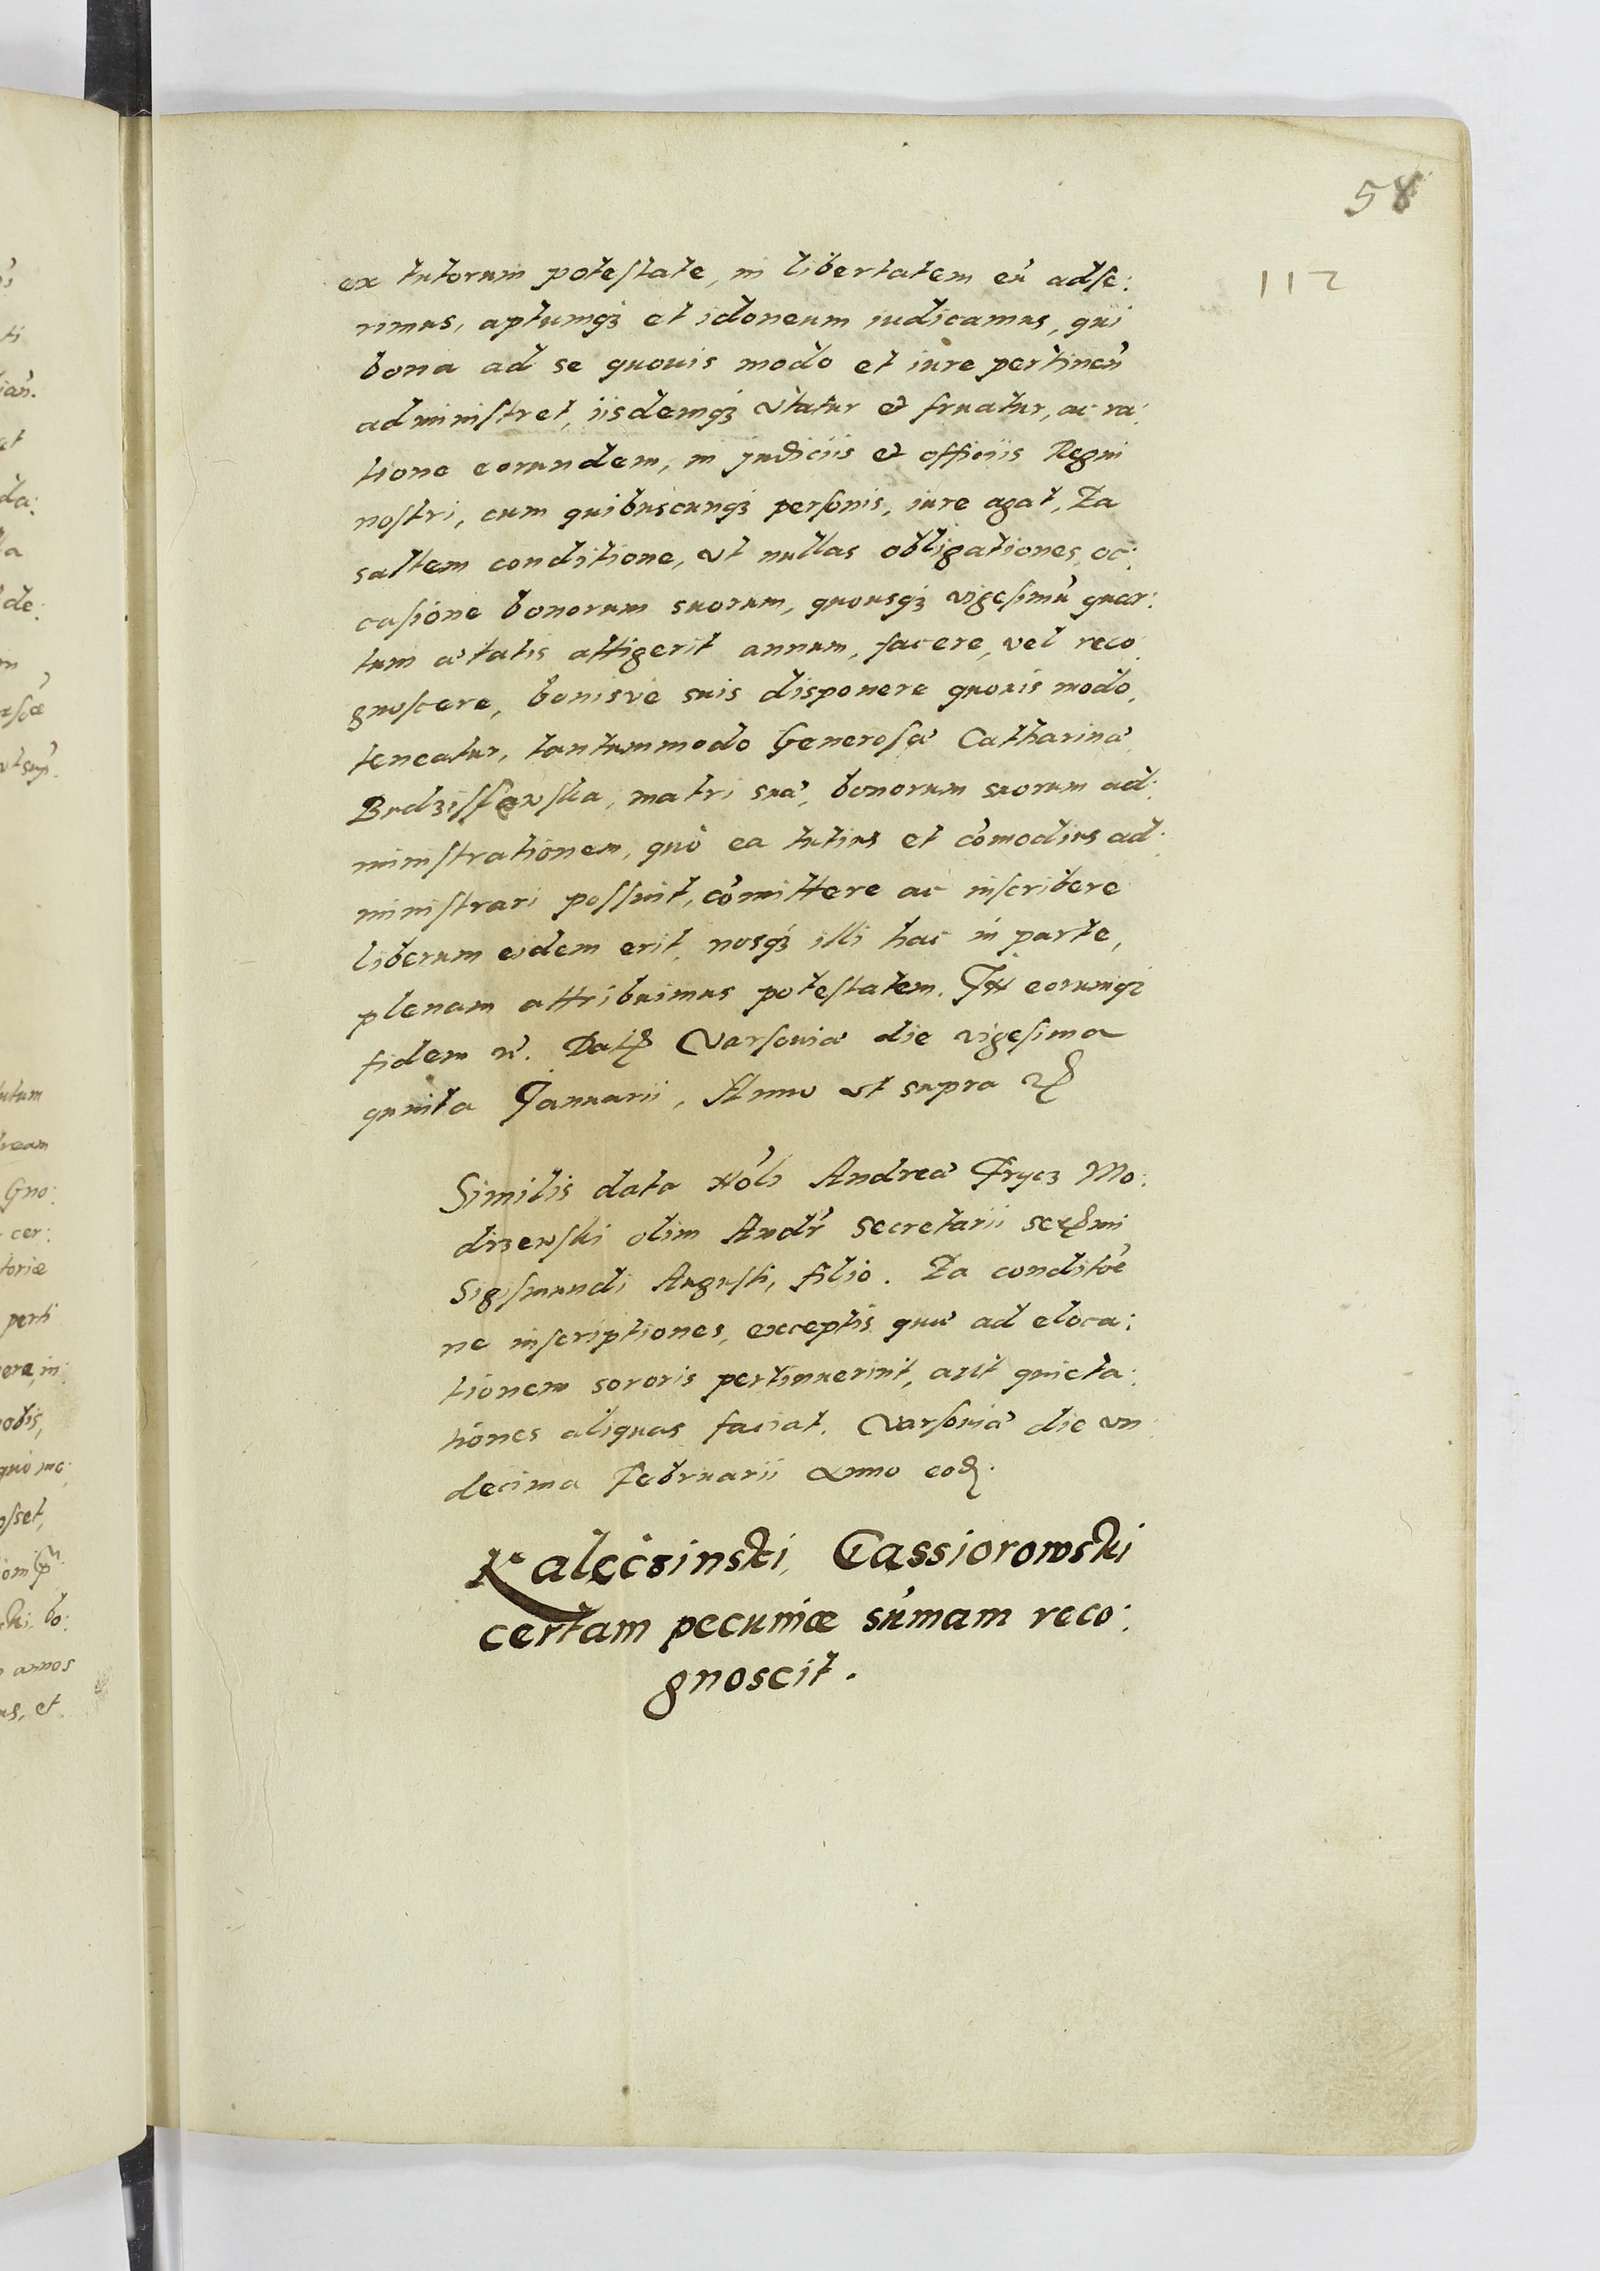 58
112
ex tutorum potestate, in libertatem eu̓ adse:
rimus, aptumq₃ et idoneum iudicamus, qui
bona ad se quouis modo et iure pertinen̓
administret, iisdemq₃ vtatur et fruatur, ac ra:
tione eorundem, in judiciis et officiis Regni
nostri, cum quibuscunq₃ personis, iure agat, Ea
saltem conditione, vt nullas obligationes, oc:
casione bonorum suorum, quousq₃ vigesimu̓ quar:
tum ætatis attigerit annum, facere, vel reco:
gnoscere, bonisve suis disponere quouis modo,
teneatur, tantummodo Generosæ Catharinæ
Budzissewska, matri suæ, bonorum suorum ad:
ministrationem, quò ea tutius et co̓modius ad:
ministrari possint, co̓mittere ac inscribere
liberum eidem erit, nosq₃ illi hac in parte,
plenam attribuimus potestatem. In eorumq₃
fidem &. Dat Varsouiæ die vigesima
quinta Januarii, Anno vt supra &
Similis data Nobli Andreæ Frycz Mo:
drzewski olim Andr̓ Secretarii Sermi
Sigismundi Augusti, filio. Ea condito̓e
ne inscriptiones, exceptis quæ ad eloca:
tionem sororis pertinuerint, aut quieta:
tiones aliquas faciat. Varsouiæ die vn
decima Februarii Anno eod.
Kalęczinski, Gassiorowski
certam pecuniæ su̓mam reco:
gnoscit.